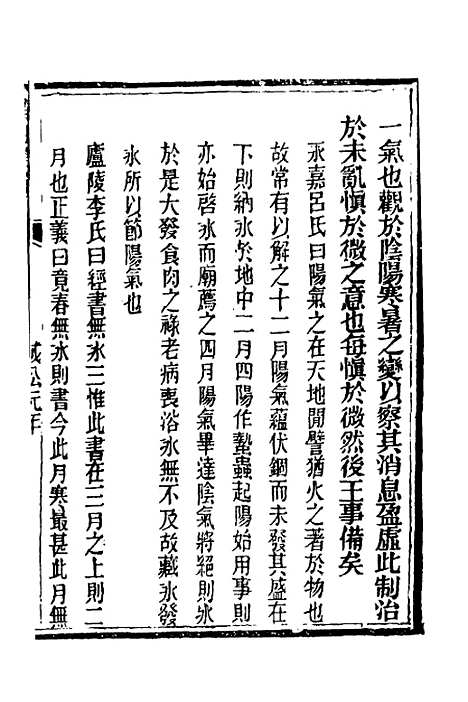 一氣也觀於陰陽寒暑之變以察其消息盈虛此制治
於未亂慎於微之意也每慎於微然後王事備矣
永嘉呂氏曰陽氣之在天地閒譬猶火之著於物也
故常有以解之十二月陽氣蘊伏錮而未發其盛在
下則納冰於地中二月四陽作蟄蟲起陽始用事則
亦始啓冰而廟薦之四月陽氣畢達陰氣將絕則冰
於是大發食肉之祿老病喪浴冰無不及故藏冰發
冰所以節陽氣也
廬陵李氏曰經書無冰三惟此書在三月之上則二
月也正義曰竟春無冰則書今此月寒最甚此月無
成公元年